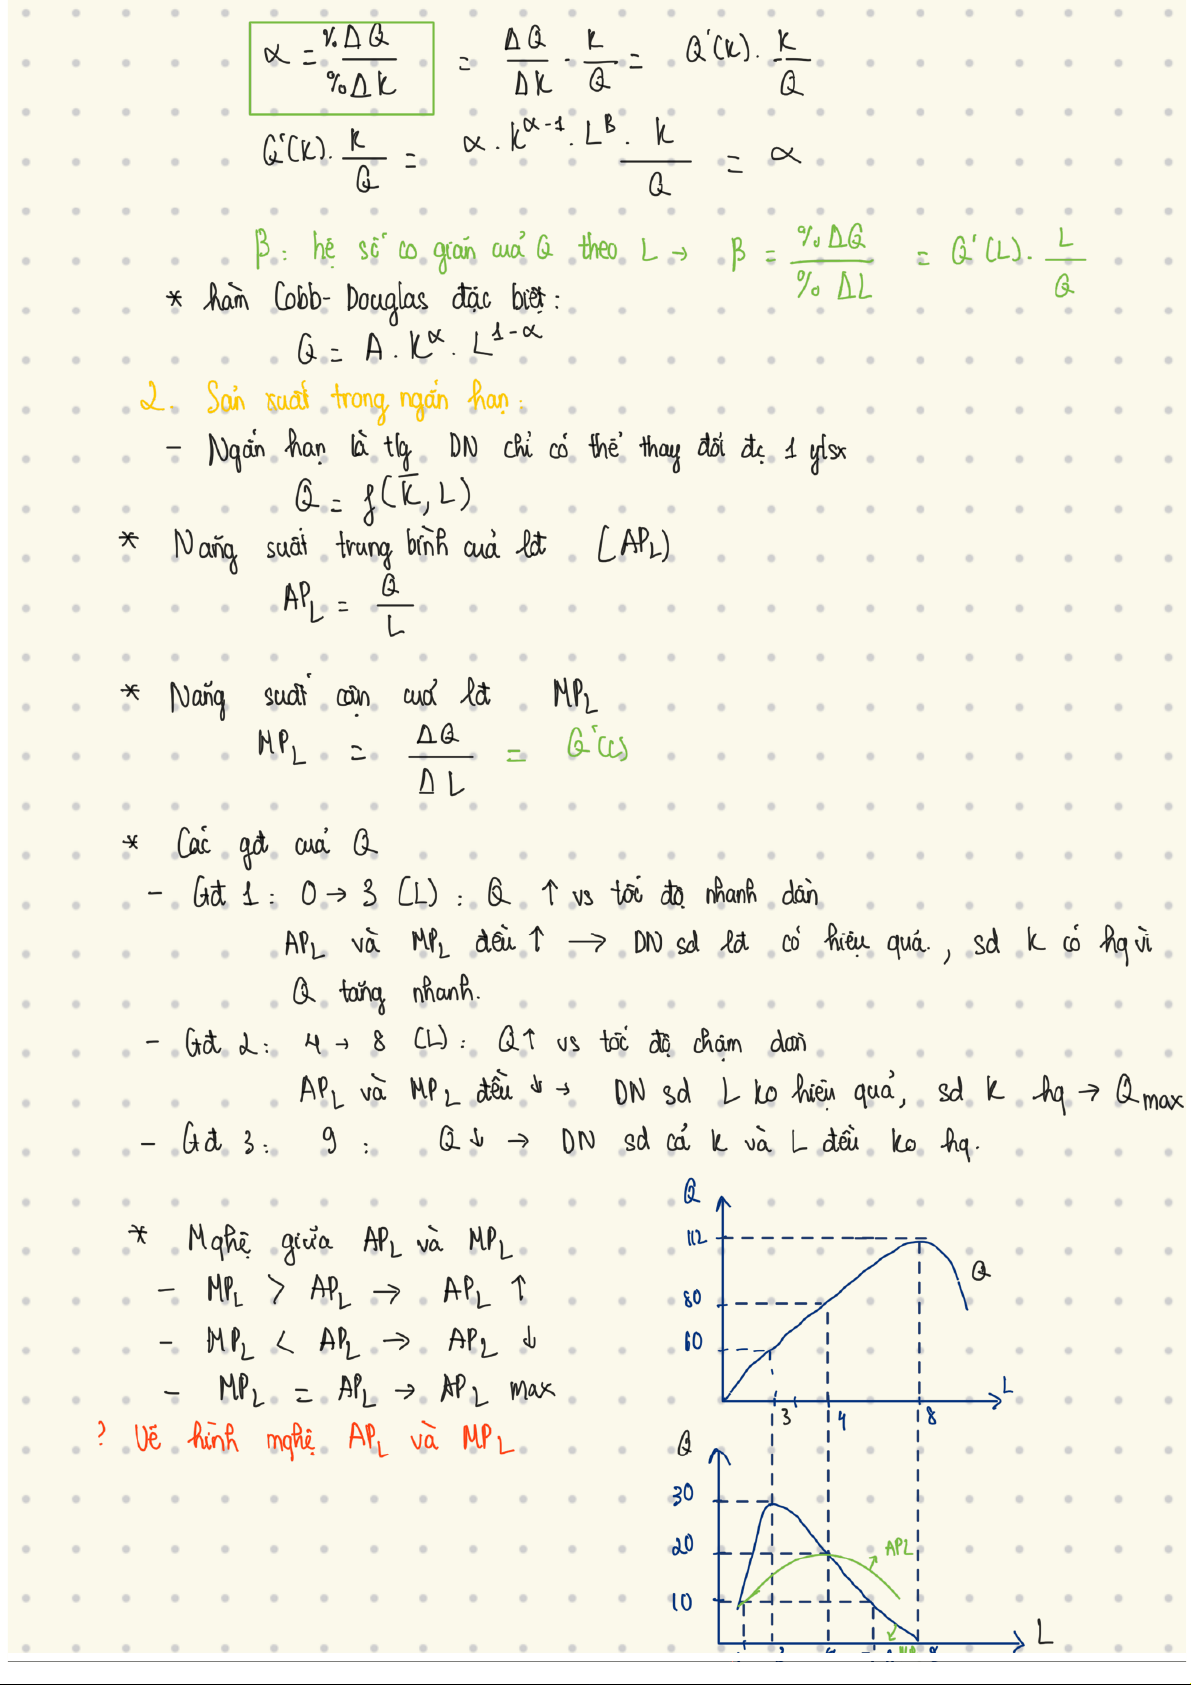 α = %ΔQ / %ΔK = ΔQ/ΔK · K/Q = Q'(K) · K/Q
Q'(K) · K/Q = α · K^(α-1) · L^β · K / Q = α
β : hệ số co giãn của Q theo L → β = %ΔQ / %ΔL = Q'(L) · L/Q
* hàm Cobb-Douglas đặc biệt :
Q = A . K^α . L^(1-α)
2. Sản xuất trong ngắn hạn :
- Ngắn hạn là tlg DN chỉ có thể thay đổi đc 1 ytsx
Q = f(K̄, L)
* Năng suất trung bình của lđ (AP_L)
AP_L = Q / L
* Năng suất cận của lđ MP_L
MP_L = ΔQ / ΔL = Q'(L)
* Các gđ của Q
- Gđ 1 : 0 → 3 (L) : Q ↑ vs tốc độ nhanh dần
AP_L và MP_L đều ↑ → DN sd lđ có hiệu quả , sd K có hq vì
Q tăng nhanh.
- Gđ 2 : 4 → 8 (L) : Q ↑ vs tốc độ chậm dần
AP_L và MP_L đều ↓ → DN sd L ko hiệu quả, sd K hq → Q max
- Gđ 3 : 9 : Q ↓ → DN sd cả K và L đều ko hq.
* Mqhệ giữa AP_L và MP_L
- MP_L > AP_L → AP_L ↑
- MP_L < AP_L → AP_L ↓
- MP_L = AP_L → AP_L max
? Vẽ hình mqhệ AP_L và MP_L
Q
112
80
60
Q
L
3 4 8
Q
30
20
10
APL
L